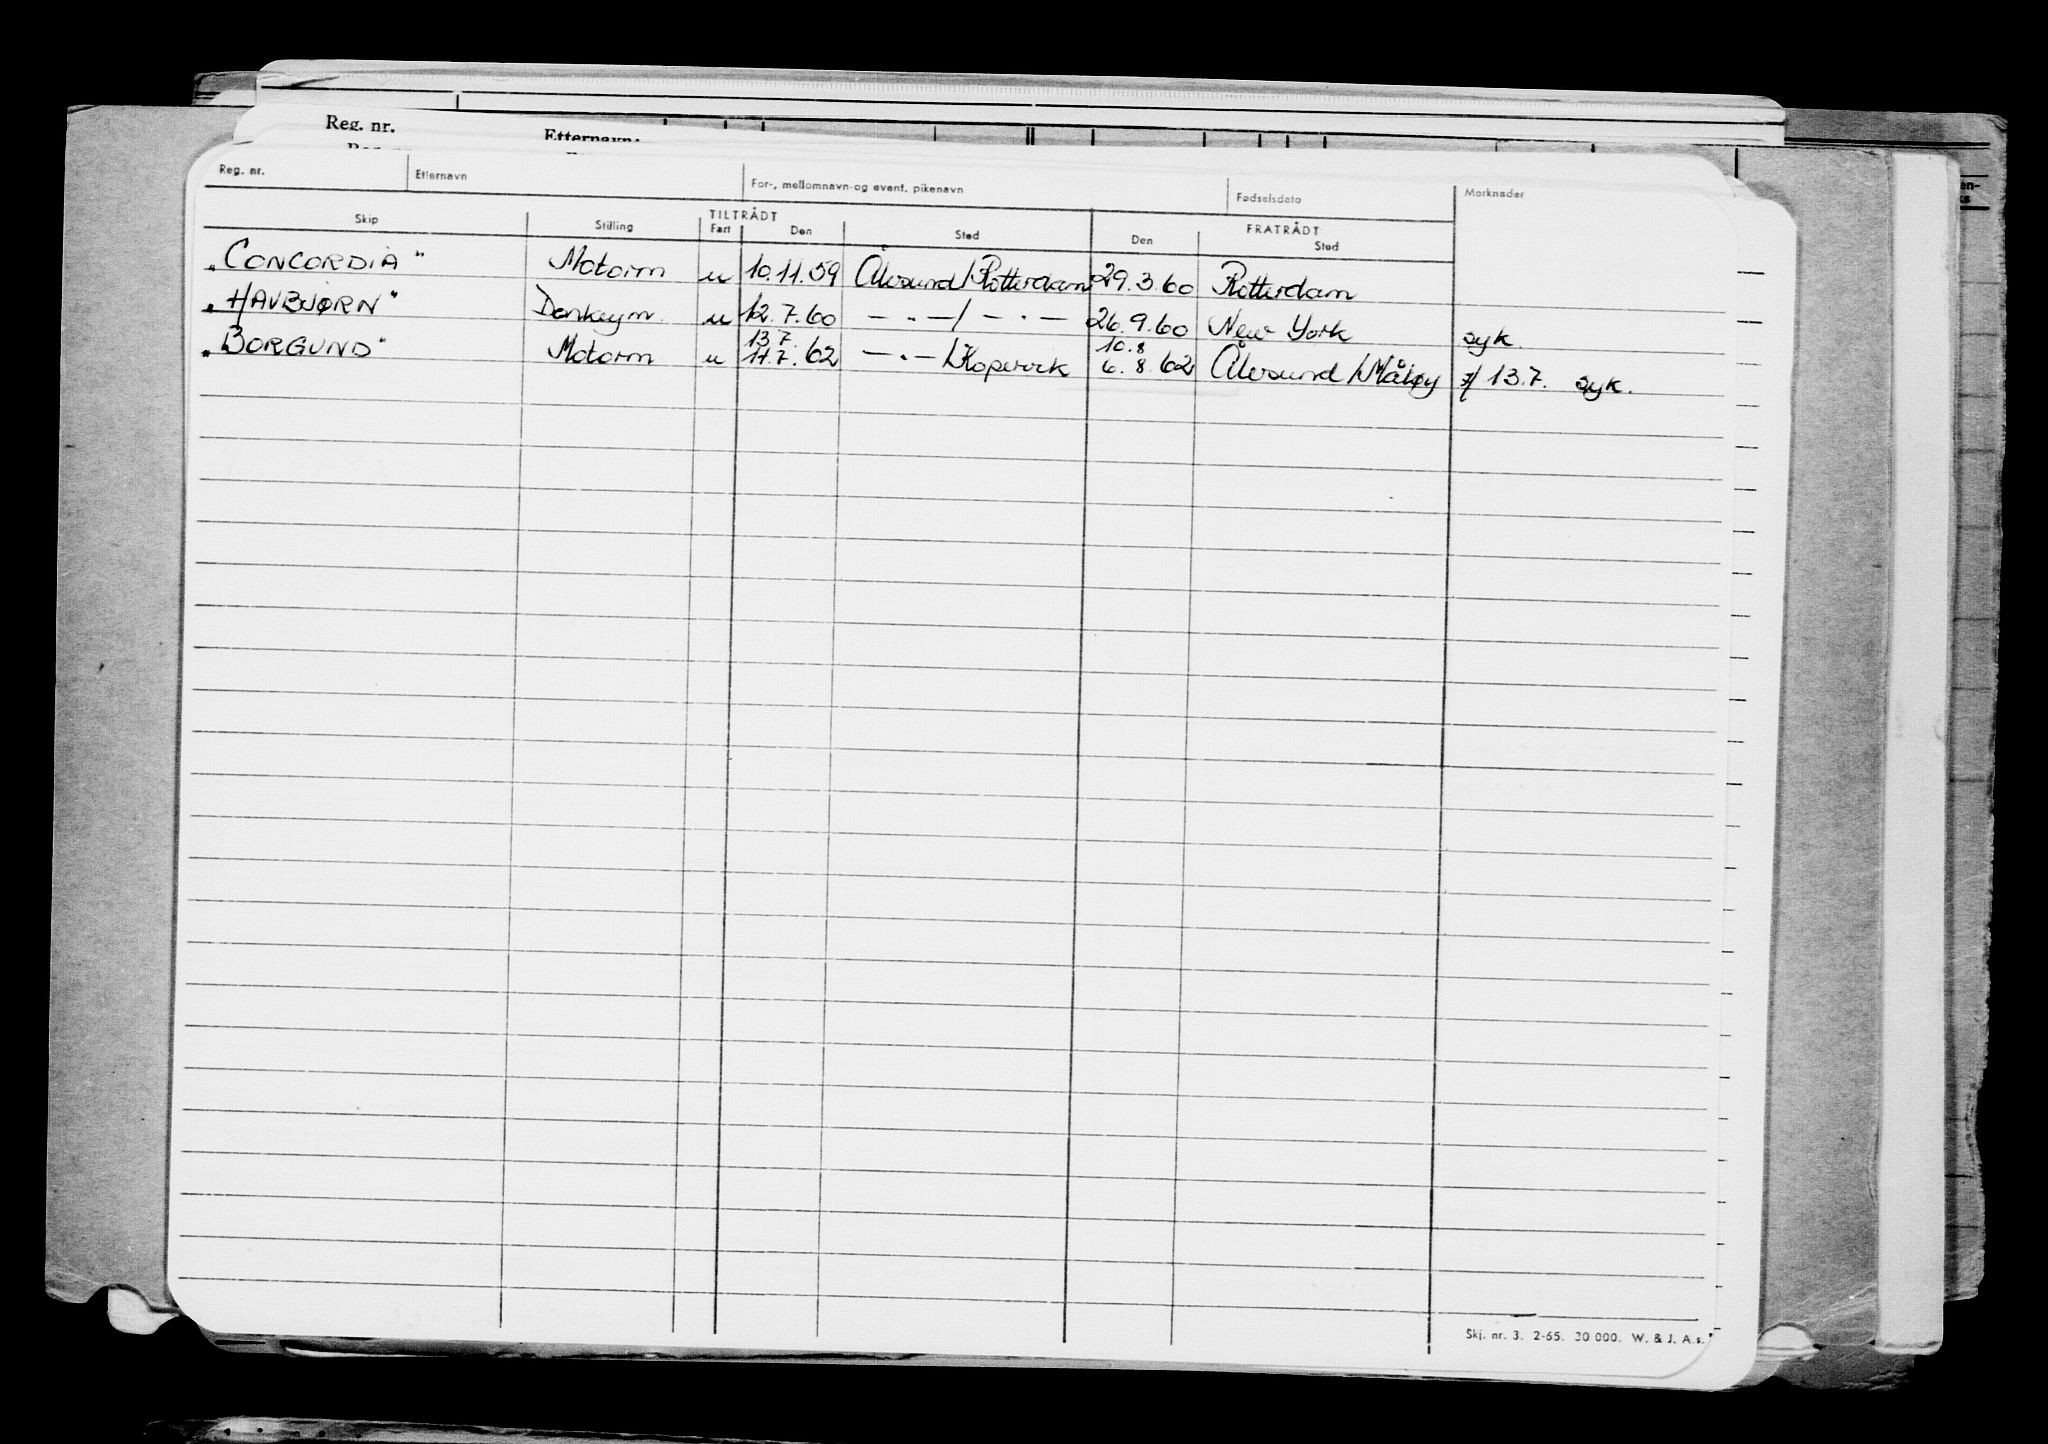 Reg. nr. Etternavn:
Reg. nr. Etternavn For-, mellomnavn og event. pikenavn Fødselsdato Merknader
TILTRÅDT FRATRÅDT
Skip Stilling Fart Den Sted Den Sted
„CONCORDIA" Motorm u 10.11.59 Ålesund/Rotterdam 29.3.60 Rotterdam
„HAVBJØRN" Donkeym. u 12.7.60 — . — / — . — 26.9.60 New York syk.
13.7. 10.8
„BORGUND" Motorm u 11.7.62 — . — /Kopervik 6.8.62 Ålesund/Måløy 13.7. syk.
Skj. nr. 3. 2-65. 30 000. W. & J. A.s.